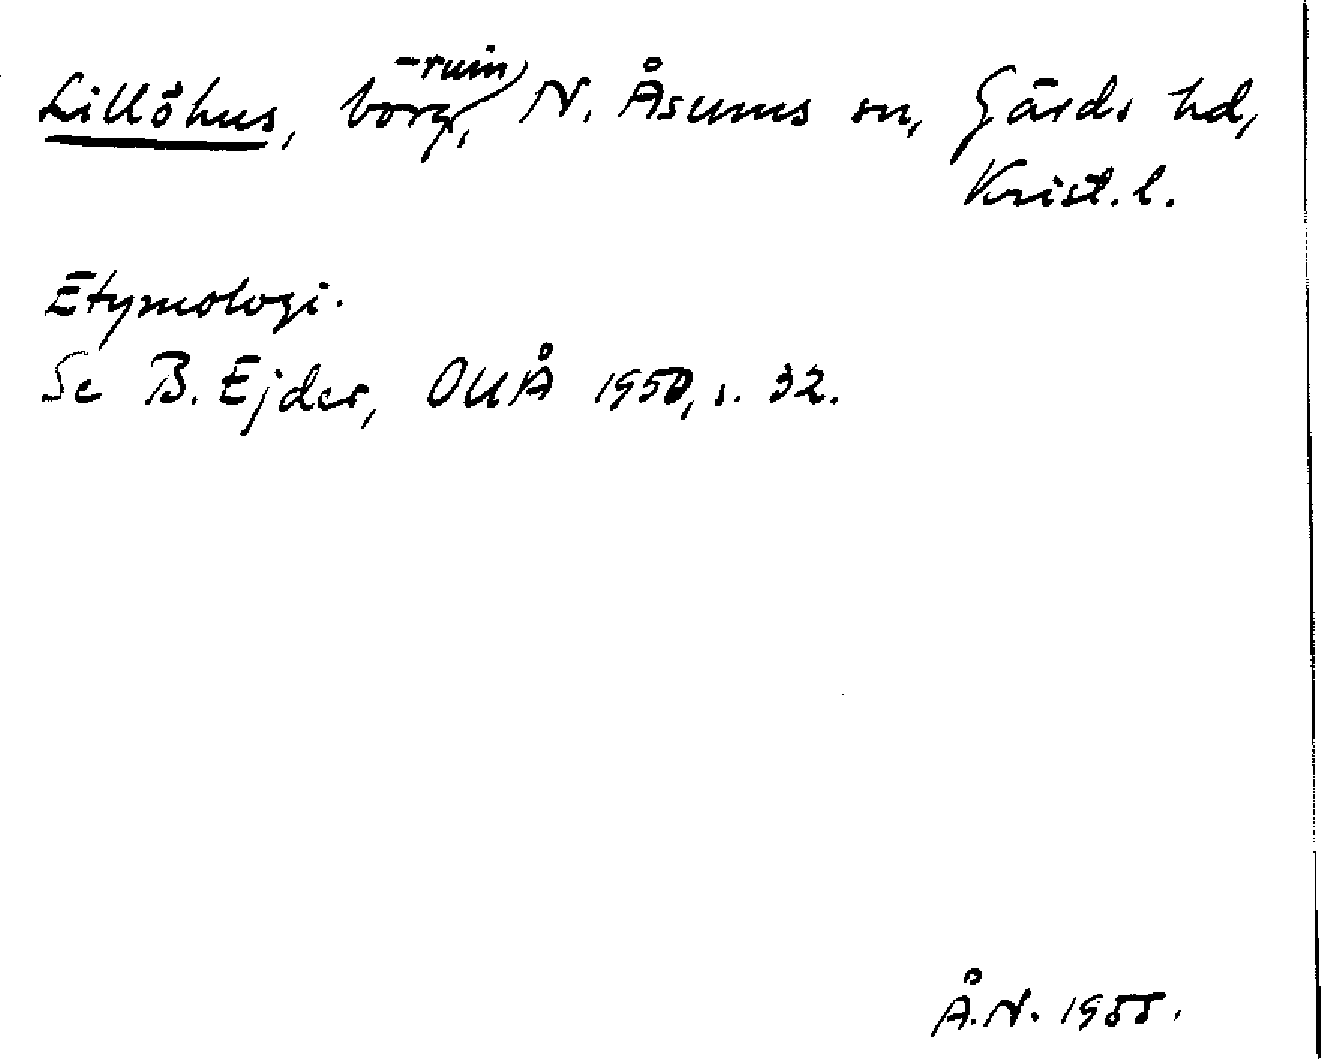 Lillöhus, borg-ruin, N. Åsums sn, Gärds hd,
Krist. l.
Etymologi.
Se B. Ejder, OUÅ 1950, s. 32.
Å.N. 1955.